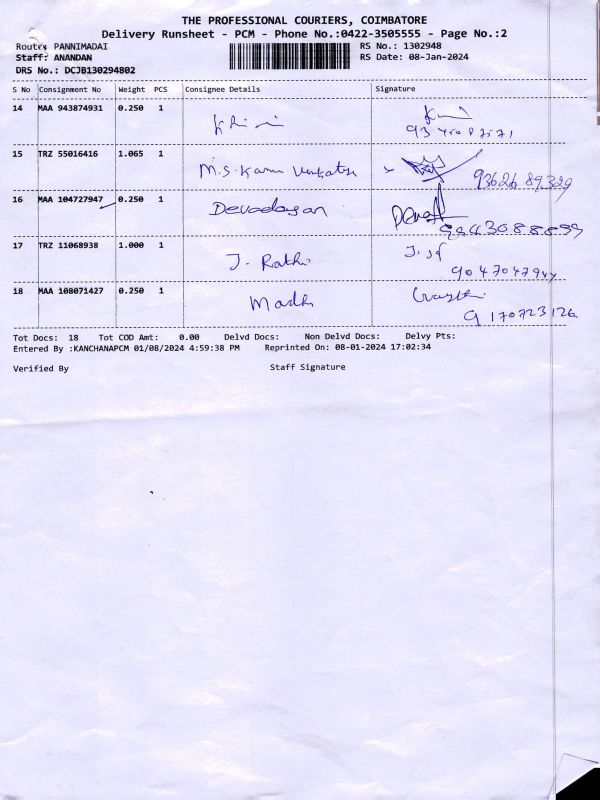 THE PROFESSIONAL COURIERS, COIMBATORE
Delivery Runsheet - PCM - Phone No.:0422-3505555 - Page No.:2
Route: PANNIMADAI RS No.: 1302948
Staff: ANANDAN RS Date: 08-Jan-2024
DRS No.: DCJB130294802
S No Consignment No Weight PCS Consignee Details Signature
14 MAA 943874931 0.250 1
15 TRZ 55016416 1.065 1
M.S. 93626 89329
16 MAA 104727947 0.250 1
Devadasan
9943088899
17 TRZ 11068938 1.000 1
J. Rathi
18 MAA 108071427 0.250 1
Madhi
9170723126
Tot Docs: 18 Tot COD Amt: 0.00 Delvd Docs: Non Delvd Docs: Delvy Pts:
Entered By :KANCHANAPCM 01/08/2024 4:59:38 PM Reprinted On: 08-01-2024 17:02:34
Verified By Staff Signature